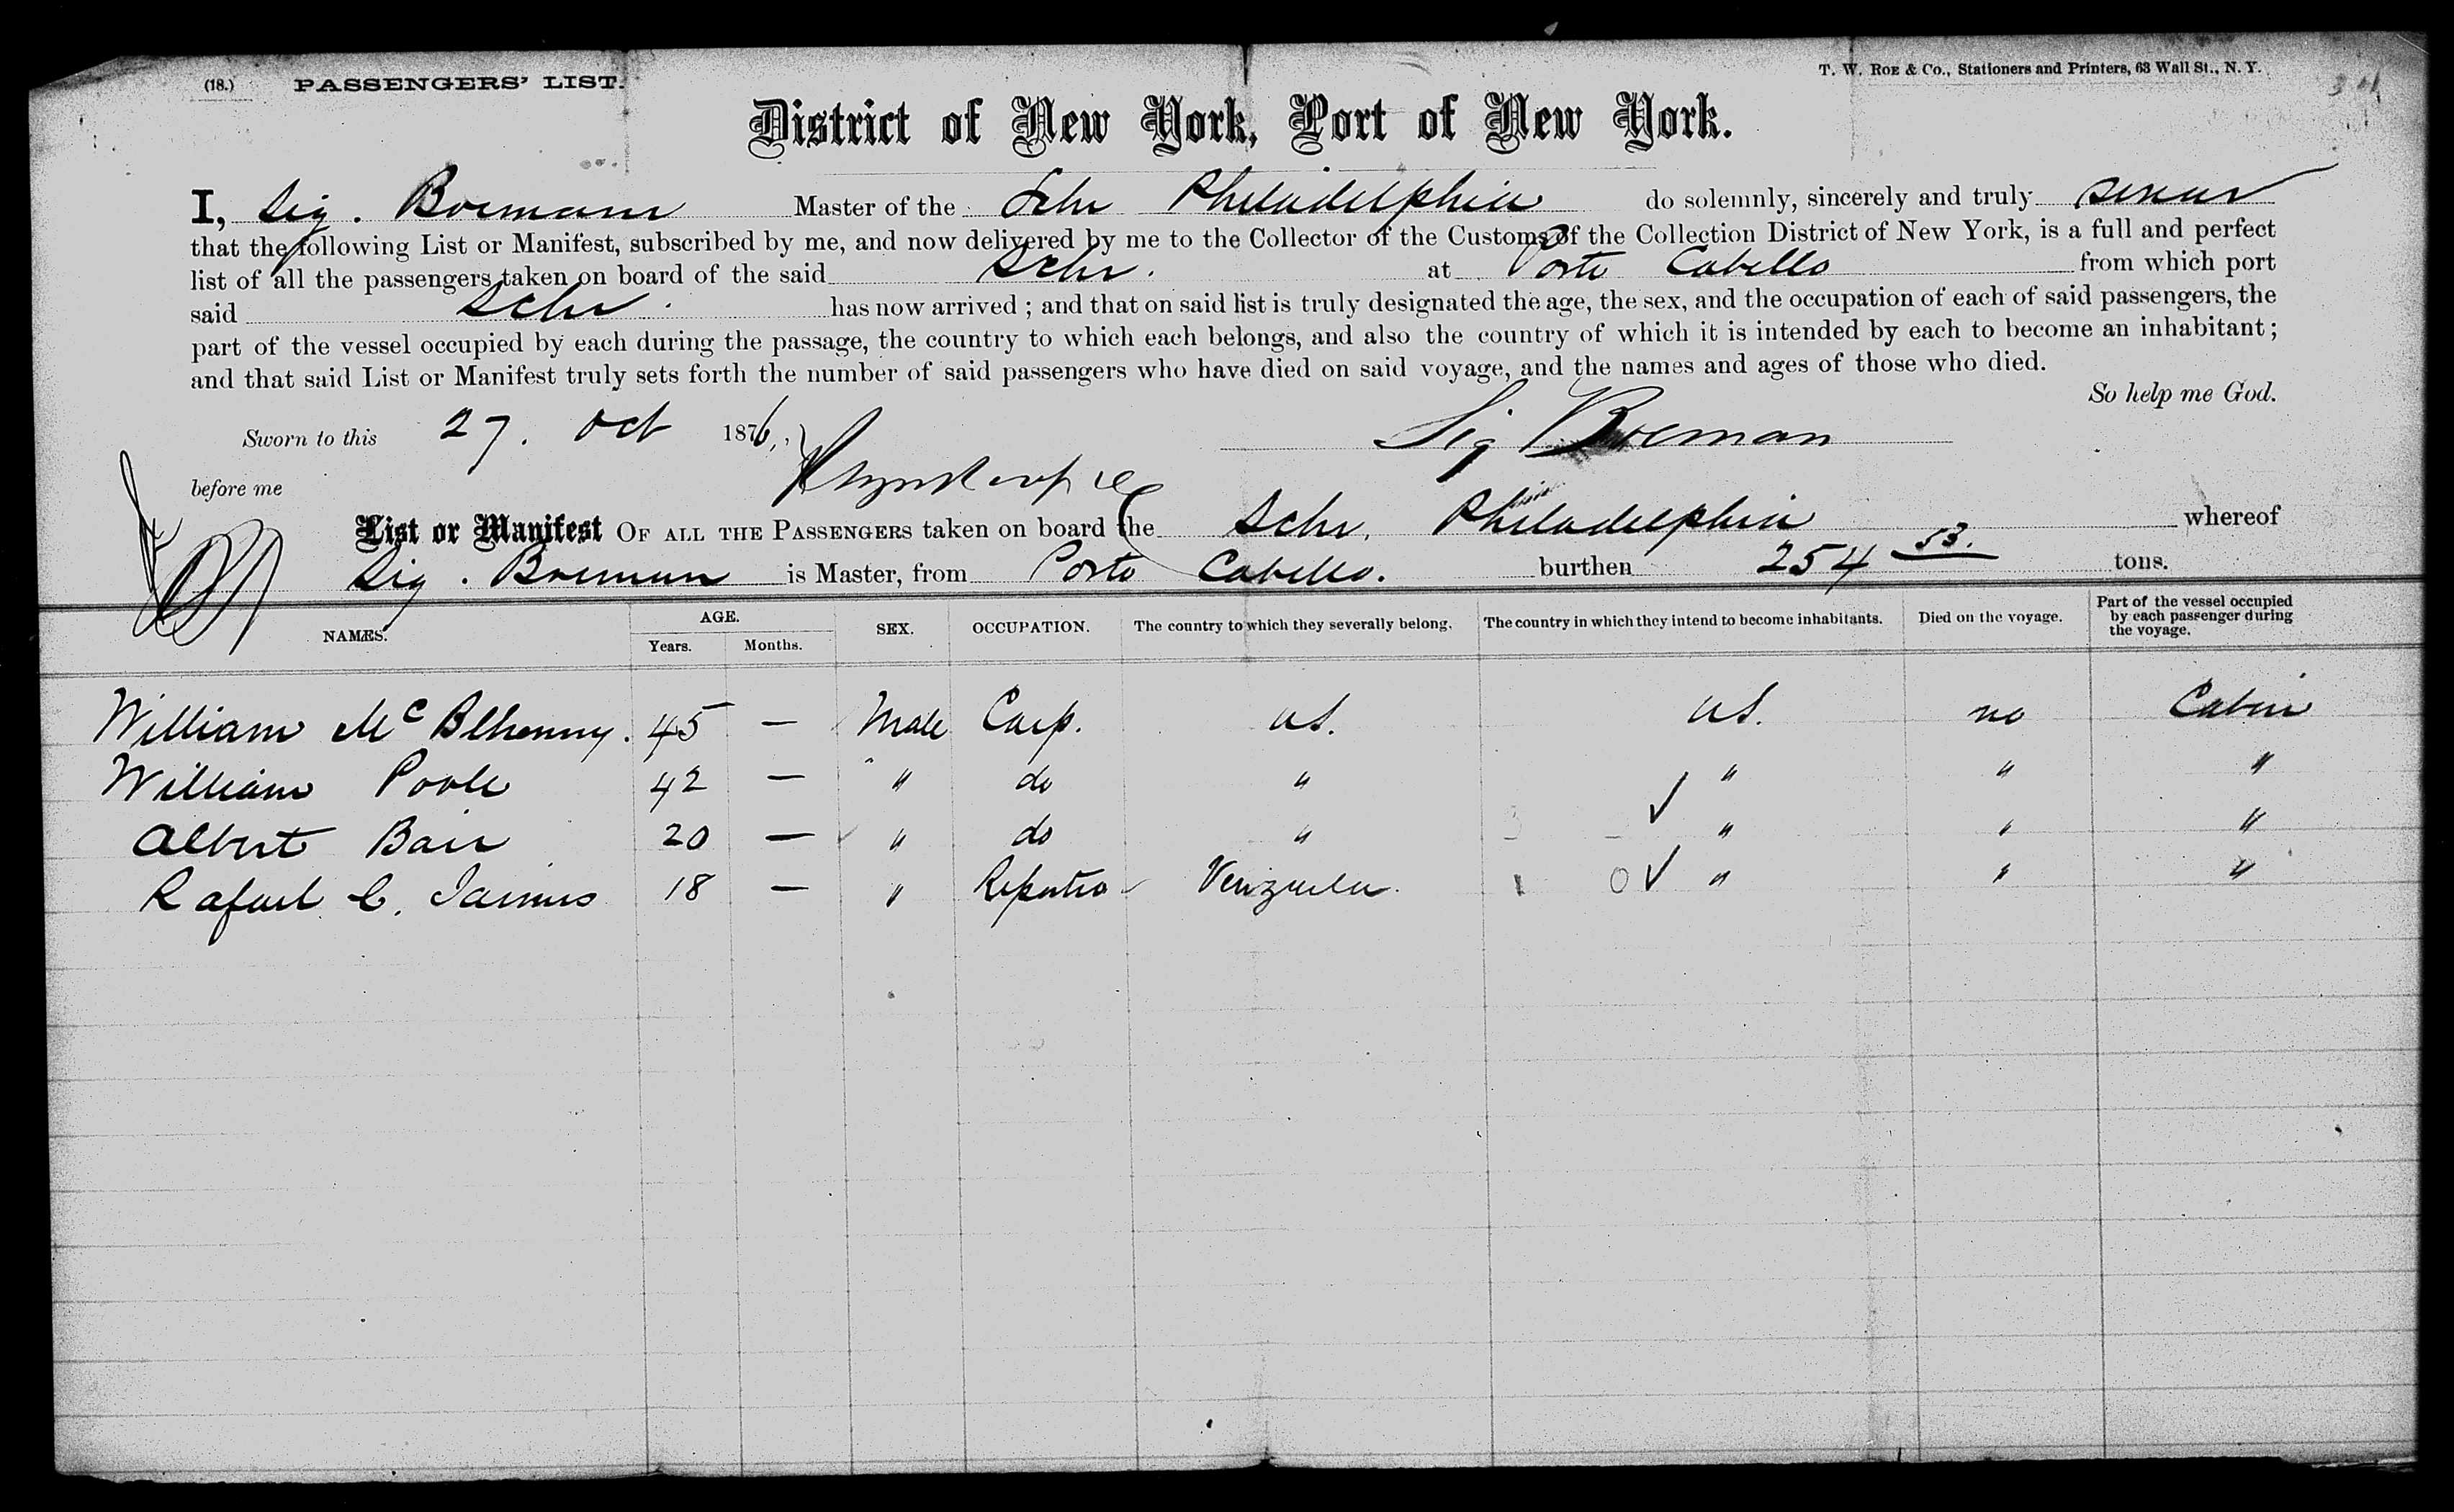 (18.) PASSENGERS' LIST.
T. W. ROE & Co., Stationers and Printers, 63 Wall St., N. Y.
District of New York, Port of New York.
I, Sig. Boemann Master of the Schr Philadelphia do solemnly, sincerely and truly swear
that the following List or Manifest, subscribed by me, and now delivered by me to the Collector of the Customs of the Collection District of New York, is a full and perfect
list of all the passengers taken on board of the said Schr. at Porto Cabello from which port
said Schr. has now arrived ; and that on said list is truly designated the age, the sex, and the occupation of each of said passengers, the
part of the vessel occupied by each during the passage, the country to which each belongs, and also the country of which it is intended by each to become an inhabitant ;
and that said List or Manifest truly sets forth the number of said passengers who have died on said voyage, and the names and ages of those who died.
So help me God.
Sworn to this 27. Oct 1876, Sig Boeman
before me
List or Manifest OF ALL THE PASSENGERS taken on board the Schr. Philadelphia whereof
Sig. Boeman is Master, from Porto Cabello. burthen 254 53. tons.
NAMES. AGE. Years. Months. SEX. OCCUPATION. The country to which they severally belong. The country in which they intend to become inhabitants. Died on the voyage. Part of the vessel occupied by each passenger during the voyage.
William Mc Blhenny. 45 — Male Carp. U.S. U.S. no Cabin
William Poole 42 — " do " " " "
Albert Bair 20 — " do " " " "
Rafael C. 18 — " Venzuela. " " "